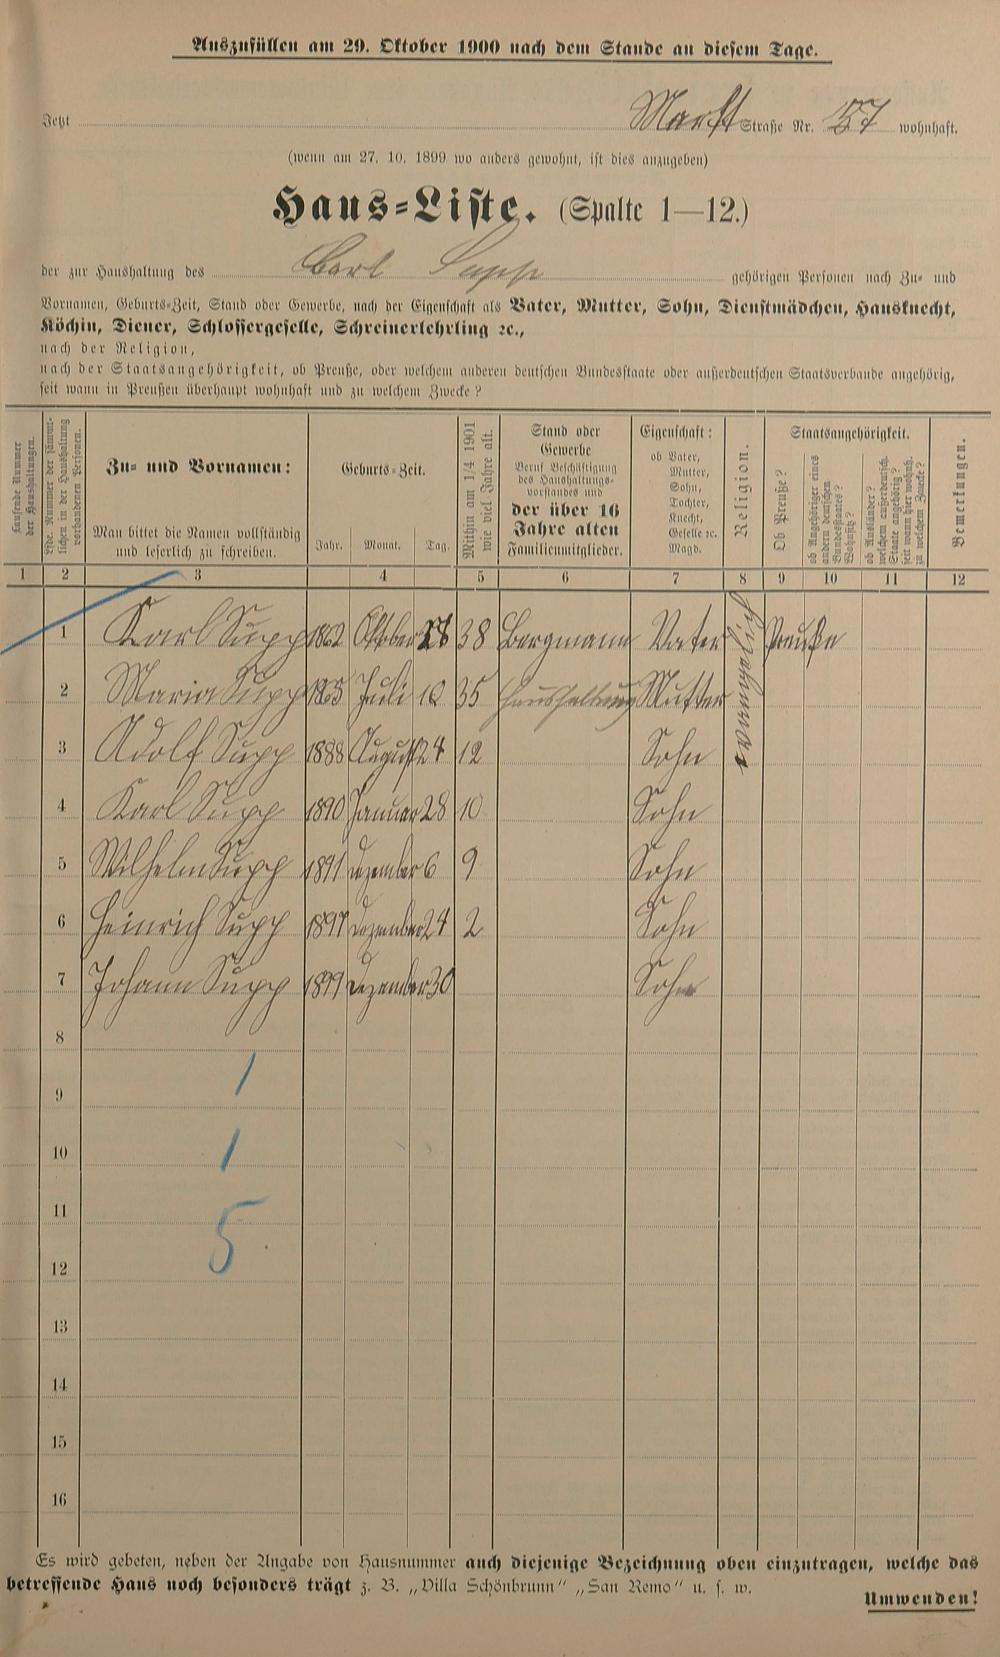 Auszufüllen am 29. Oktober 1900 nach dem Stande an diesem Tage.
Jetzt Markt Straße Nr. 57 wohnhaft.
(wenn am 27. 10. 1899 wo anders gewohnt, ist dies anzugeben)
Haus-Liste. (Spalte 1—12.)
der zur Haushaltung des Carl Supp gehörigen Personen nach Zu- und
Vornamen, Geburts-Zeit, Stand oder Gewerbe, nach der Eigenschaft als Vater, Mutter, Sohn, Dienstmädchen, Hausknecht,
Köchin, Diener, Schlossergeselle, Schreinerlehrling ꝛc.,
nach der Religion,
nach der Staatsangehörigkeit, ob Preuße, oder welchem anderen deutschen Bundesstaate oder außerdeutschen Staatsverbande angehörig,
seit wann in Preußen überhaupt wohnhaft und zu welchem Zwecke?
Laufende Nummer
der Haushaltungen.
Lfde. Nummer der sämmt-
lichen in der Haushaltung
vorhandenen Personen.
Zu- und Vornamen:
Man bittet die Namen vollständig
und leserlich zu schreiben.
Geburts-Zeit.
Jahr. Monat. Tag.
Mithin am 1/4 1901
wie viel Jahre alt.
Stand oder
Gewerbe
Beruf Beschäftigung
des Haushaltungs-
vorstandes und
der über 16
Jahre alten
Familienmitglieder.
Eigenschaft:
ob Vater,
Mutter,
Sohn,
Tochter,
Knecht,
Geselle ꝛc.
Magd.
Religion.
Staatsangehörigkeit.
Ob Preuße?
ob Angehöriger eines
andern deutschen
Bundesstaates?
Wohnsitz?
ob Ausländer?
welchem außerdeutsch.
Staate angehörig?
seit wann hier wohnh.
zu welchem Zwecke?
Bemerkungen.
1 2 3 4 5 6 7 8 9 10 11 12
1 Karl Supp 1862 Oktober 28 38 Bergmann Vater evangelisch Preuße
2 Maria Supp 1865 Juli 10 35 Haushaltung Mutter
3 Adolf Supp 1888 August 24 12 Sohn
4 Karl Supp 1890 Januar 28 10 Sohn
5 Wilhelm Supp 1891 Dezember 6 9 Sohn
6 Heinrich Supp 1897 Dezember 24 2 Sohn
7 Johann Supp 1899 Dezember 30 Sohn
8
9 1
10 1
11
12 5
13
14
15
16
Es wird gebeten, neben der Angabe von Hausnummer auch diejenige Bezeichnung oben einzutragen, welche das
betreffende Haus noch besonders trägt z. B. „Villa Schönbrunn“ „San Remo“ u. s. w.
Umwenden!